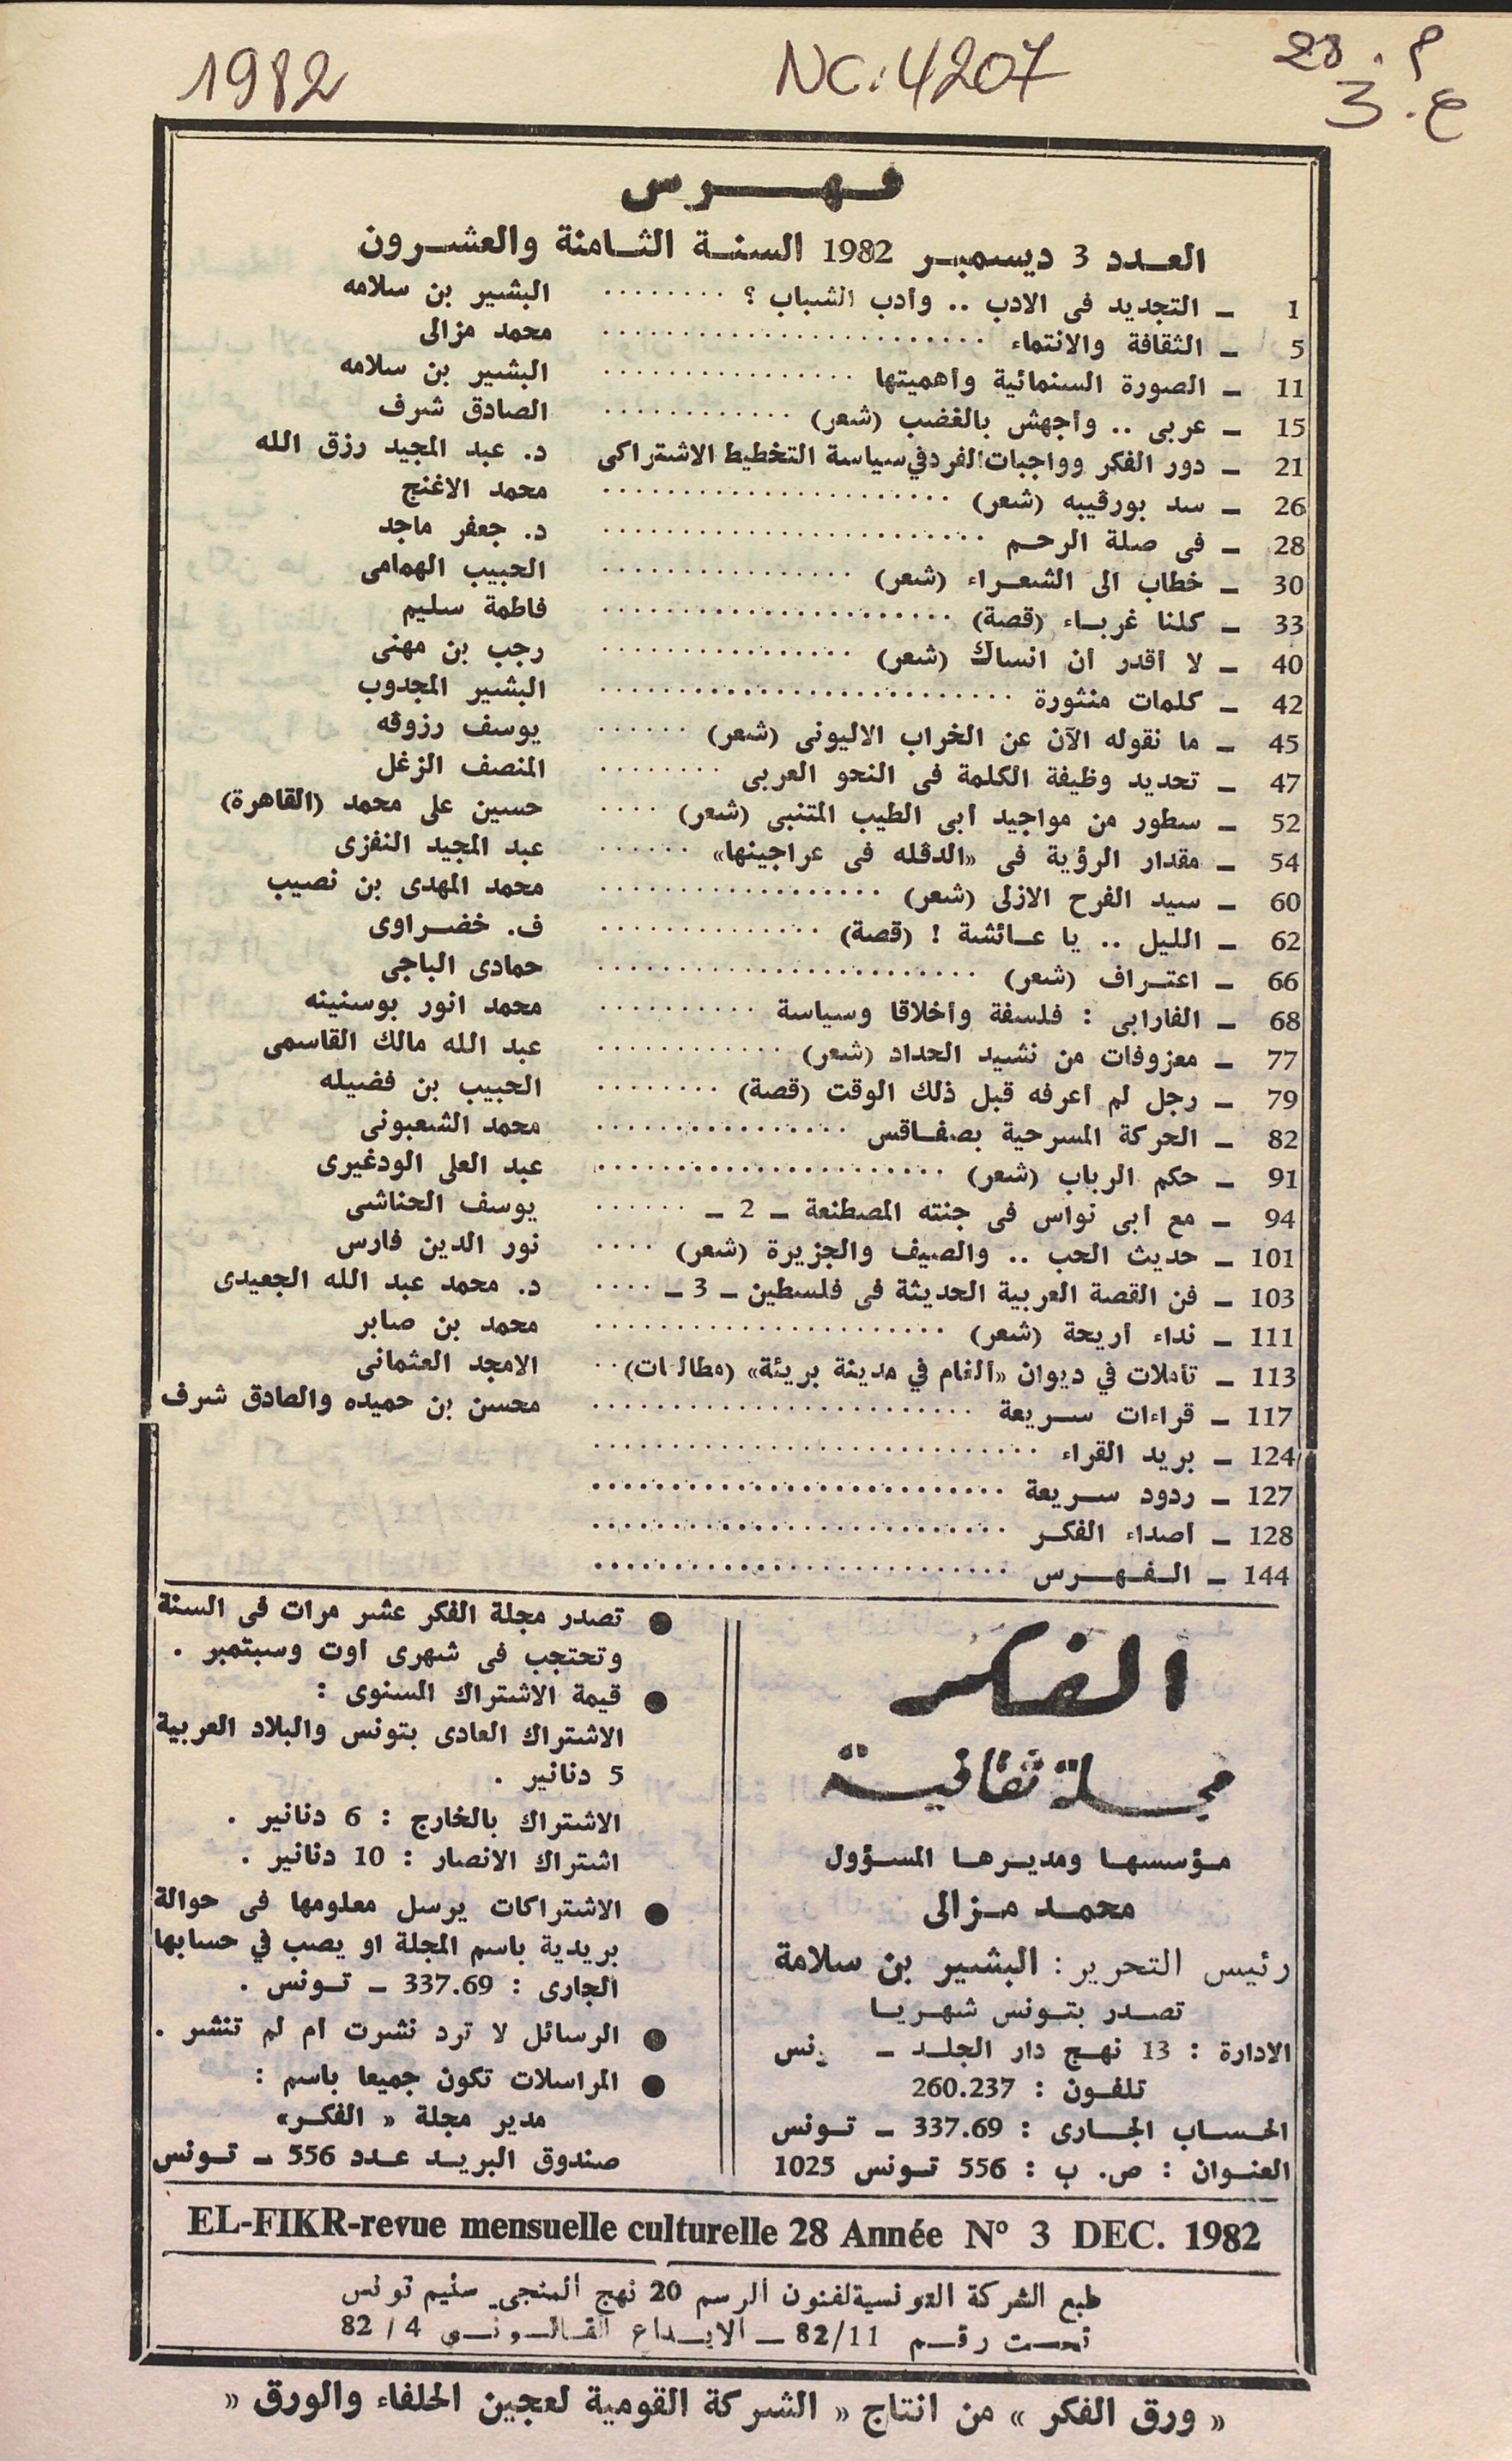 1982
NC: 4207
م. 28
ع. 3
فهرس
العدد 3 ديسمبر 1982 السنة الثامنة والعشرون
1 ـ التجديد فى الادب .. وأدب الشباب ؟ ........ البشير بن سلامه
5 ـ الثقافة والانتماء ........ محمد مزالى
11 ـ الصورة السنمائية وأهميتها ........ البشير بن سلامه
15 ـ عربى .. وأجهش بالغضب (شعر) ........ الصادق شرف
21 ـ دور الفكر وواجبات الفرد في سياسة التخطيط الاشتراكى د. عبد المجيد رزق الله
26 ـ سد بورقيبه (شعر) ........ محمد الاغنج
28 ـ فى صلة الرحم ........ د. جعفر ماجد
30 ـ خطاب الى الشعراء (شعر) ........ الحبيب الهمامى
33 ـ كلنا غرباء (قصة) ........ فاطمة سليم
40 ـ لا أقدر أن انساك (شعر) ........ رجب بن مهنى
42 ـ كلمات منثورة ........ البشير المجدوب
45 ـ ما نقوله الآن عن الخراب الاليونى (شعر) ...... يوسف رزوقه
47 ـ تحديد وظيفة الكلمة فى النحو العربى ........ المنصف الزغل
52 ـ سطور من مواجيد أبى الطيب المتنبى (شعر) .... حسين على محمد (القاهرة)
54 ـ مقدار الرؤية فى «الدقله فى عراجينها» ...... عبد المجيد النفزى
60 ـ سيد الفرح الازلى (شعر) ........ محمد المهدى بن نصيب
62 ـ الليل .. يا عائشة ! (قصة) ........ ف. خضراوى
66 ـ اعتراف (شعر) ........ حمادى الباجى
68 ـ الفارابى : فلسفة وأخلاقا وسياسة ........ محمد انور بوسنينه
77 ـ معزوفات من نشيد الحداد (شعر) ........ عبد الله مالك القاسمى
79 ـ رجل لم أعرفه قبل ذلك الوقت (قصة) ........ الحبيب بن فضيله
82 ـ الحركة المسرحية بصفاقس ........ محمد الشعبونى
91 ـ حكم الرباب (شعر) ........ عبد العلى الودغيرى
94 ـ مع أبى نواس فى جنته المصطنعة ـ 2 ـ ...... يوسف الحناشى
101 ـ حديث الحب .. والصيف والجزيرة (شعر) .... نور الدين فارس
103 ـ فن القصة العربية الحديثة فى فلسطين ـ 3 ـ .... د. محمد عبد الله الجعيدى
111 ـ نداء أريحة (شعر) ........ محمد بن صابر
113 ـ تأملات في ديوان «ألغام في مدينة بريئة» (مطالعات) .. الامجد العثمانى
117 ـ قراءات سريعة ........ محسن بن حميده والصادق شرف
124 ـ بريد القراء ........
127 ـ ردود سريعة ........
128 ـ أصداء الفكر ........
144 ـ الفهرس ........
الفكر
مجلة ثقافية
مؤسسها ومديرها المسؤول
محمد مزالى
رئيس التحرير : البشير بن سلامة
تصدر بتونس شهريا
الادارة : 13 نهج دار الجلد ـ ونس
تلفون : 260.237
الحساب الجارى : 337.69 ـ تونس
العنوان : ص. ب : 556 تونس 1025
● تصدر مجلة الفكر عشر مرات فى السنة
وتحتجب فى شهرى أوت وسبتمبر .
● قيمة الاشتراك السنوى :
الاشتراك العادى بتونس والبلاد العربية
5 دنانير .
الاشتراك بالخارج : 6 دنانير .
اشتراك الانصار : 10 دنانير .
● الاشتراكات يرسل معلومها فى حوالة
بريدية باسم المجلة او يصب في حسابها
الجارى : 337.69 ـ تونس .
● الرسائل لا ترد نشرت ام لم تنشر .
● المراسلات تكون جميعا باسم :
مدير مجلة « الفكر»
صندوق البريد عدد 556 ـ تونس
EL-FIKR-revue mensuelle culturelle 28 Année N° 3 DEC. 1982
طبع الشركة التونسية لفنون الرسم 20 نهج المنجى سليم تونس
تحت رقم 82/11 ـ الايداع القانونى 4 / 82
« ورق الفكر » من انتاج « الشركة القومية لعجين الحلفاء والورق «